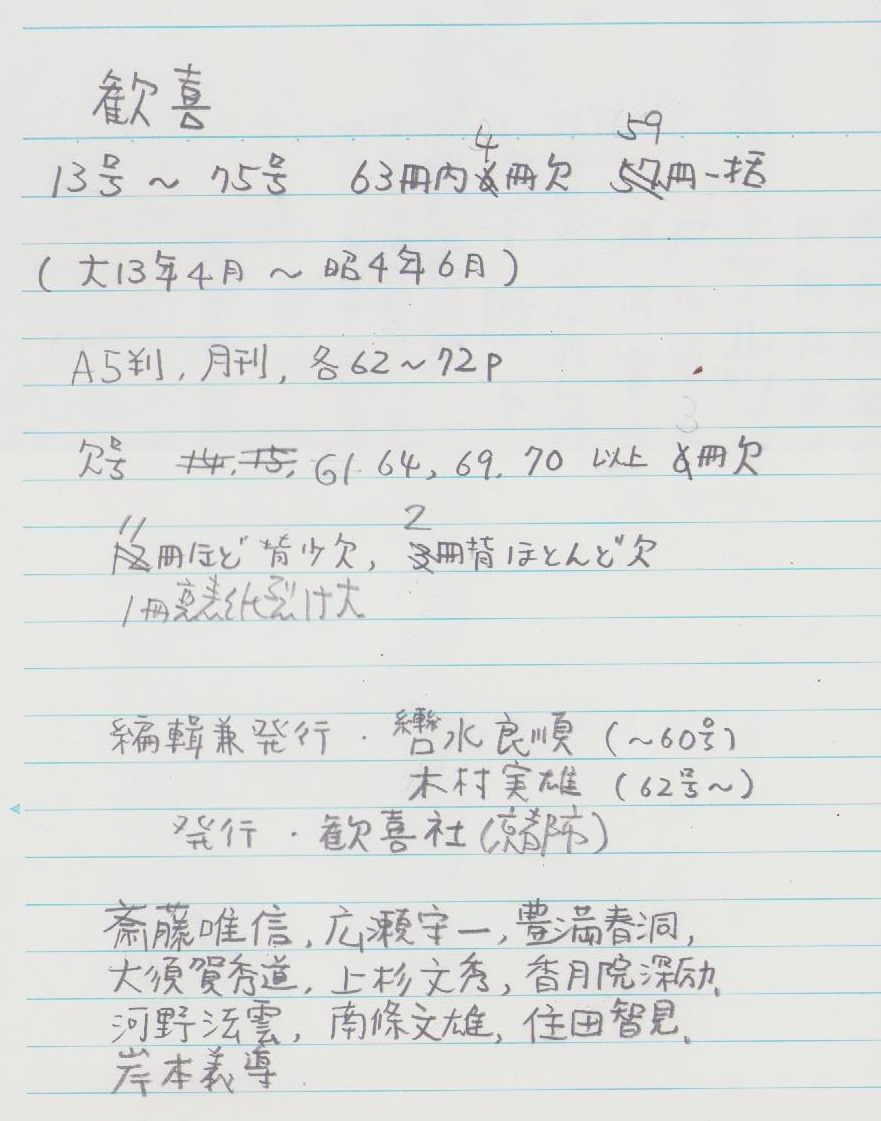 歓喜
13号～75号 63冊内4冊欠 59冊一括
(大13年4月～昭4年6月)
A5判, 月刊, 各62～72P
欠号 14, 15, 61. 64, 69, 70 以上 冊欠
11冊ほど背少欠, 2冊背ほとんど欠
1冊裏表紙裂け大
編輯兼発行・轡水良順 (～60号)
木村実雄 (62号～)
発行・歓喜社(京都市)
斎藤唯信, 広瀬守一, 豊満春洞,
大須賀秀道, 上杉文秀, 香月院深励,
河野法雲, 南條文雄, 住田智見,
岸本義導